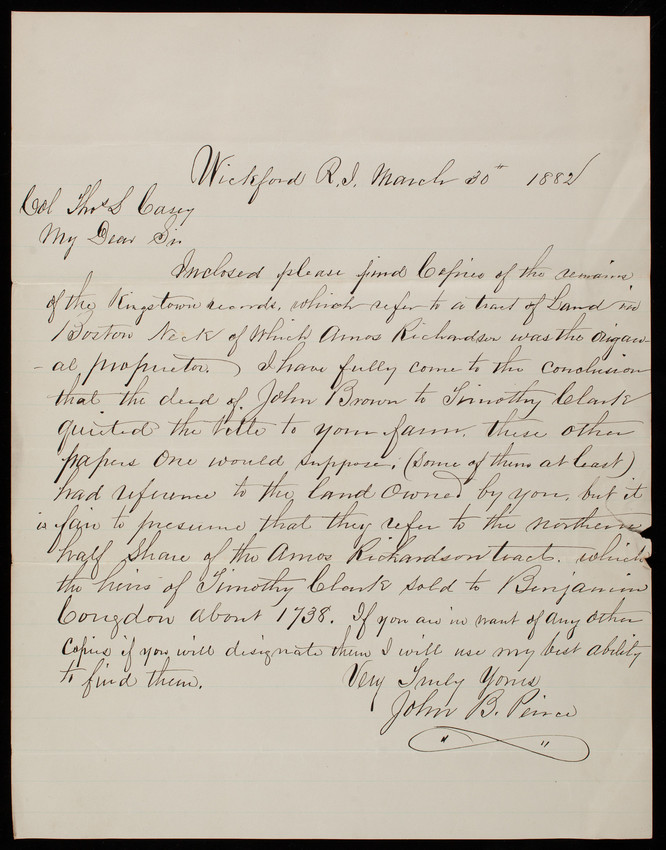 Wickford R.I. March 30th 1882
Col Thos L Casey
My Dear Sir
Inclosed please find Copies of the remains
of the Kingstown records, which refer to a tract of Land in
Boston Neck of which Amos Richardson was the origan-
-al proprietor. I have fully come to the conclusion
that the deed of John Brown to Timothy Clark
quieted the title to your farm. these other
papers one would suppose, (some of them at least)
had reference to the land owned by you, but it
is fair to presume that they refer to the northern
half share of the Amos Richardson tract. which
the heirs of Timothy Clark sold to Benjamin
Congdon about 1738. If you are in want of any other
copies if you will designate them I will use my best ability
to find them.
Very Truly Yours
John B. Peirce